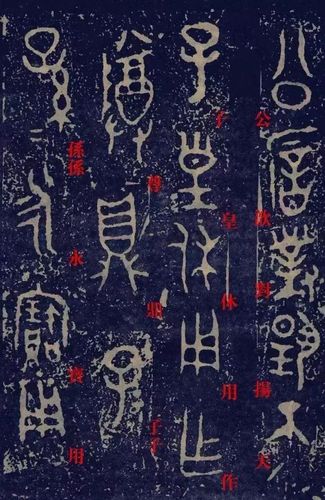 公對揚天
子皇休用作
尊鼎子子
孫孫永寶用